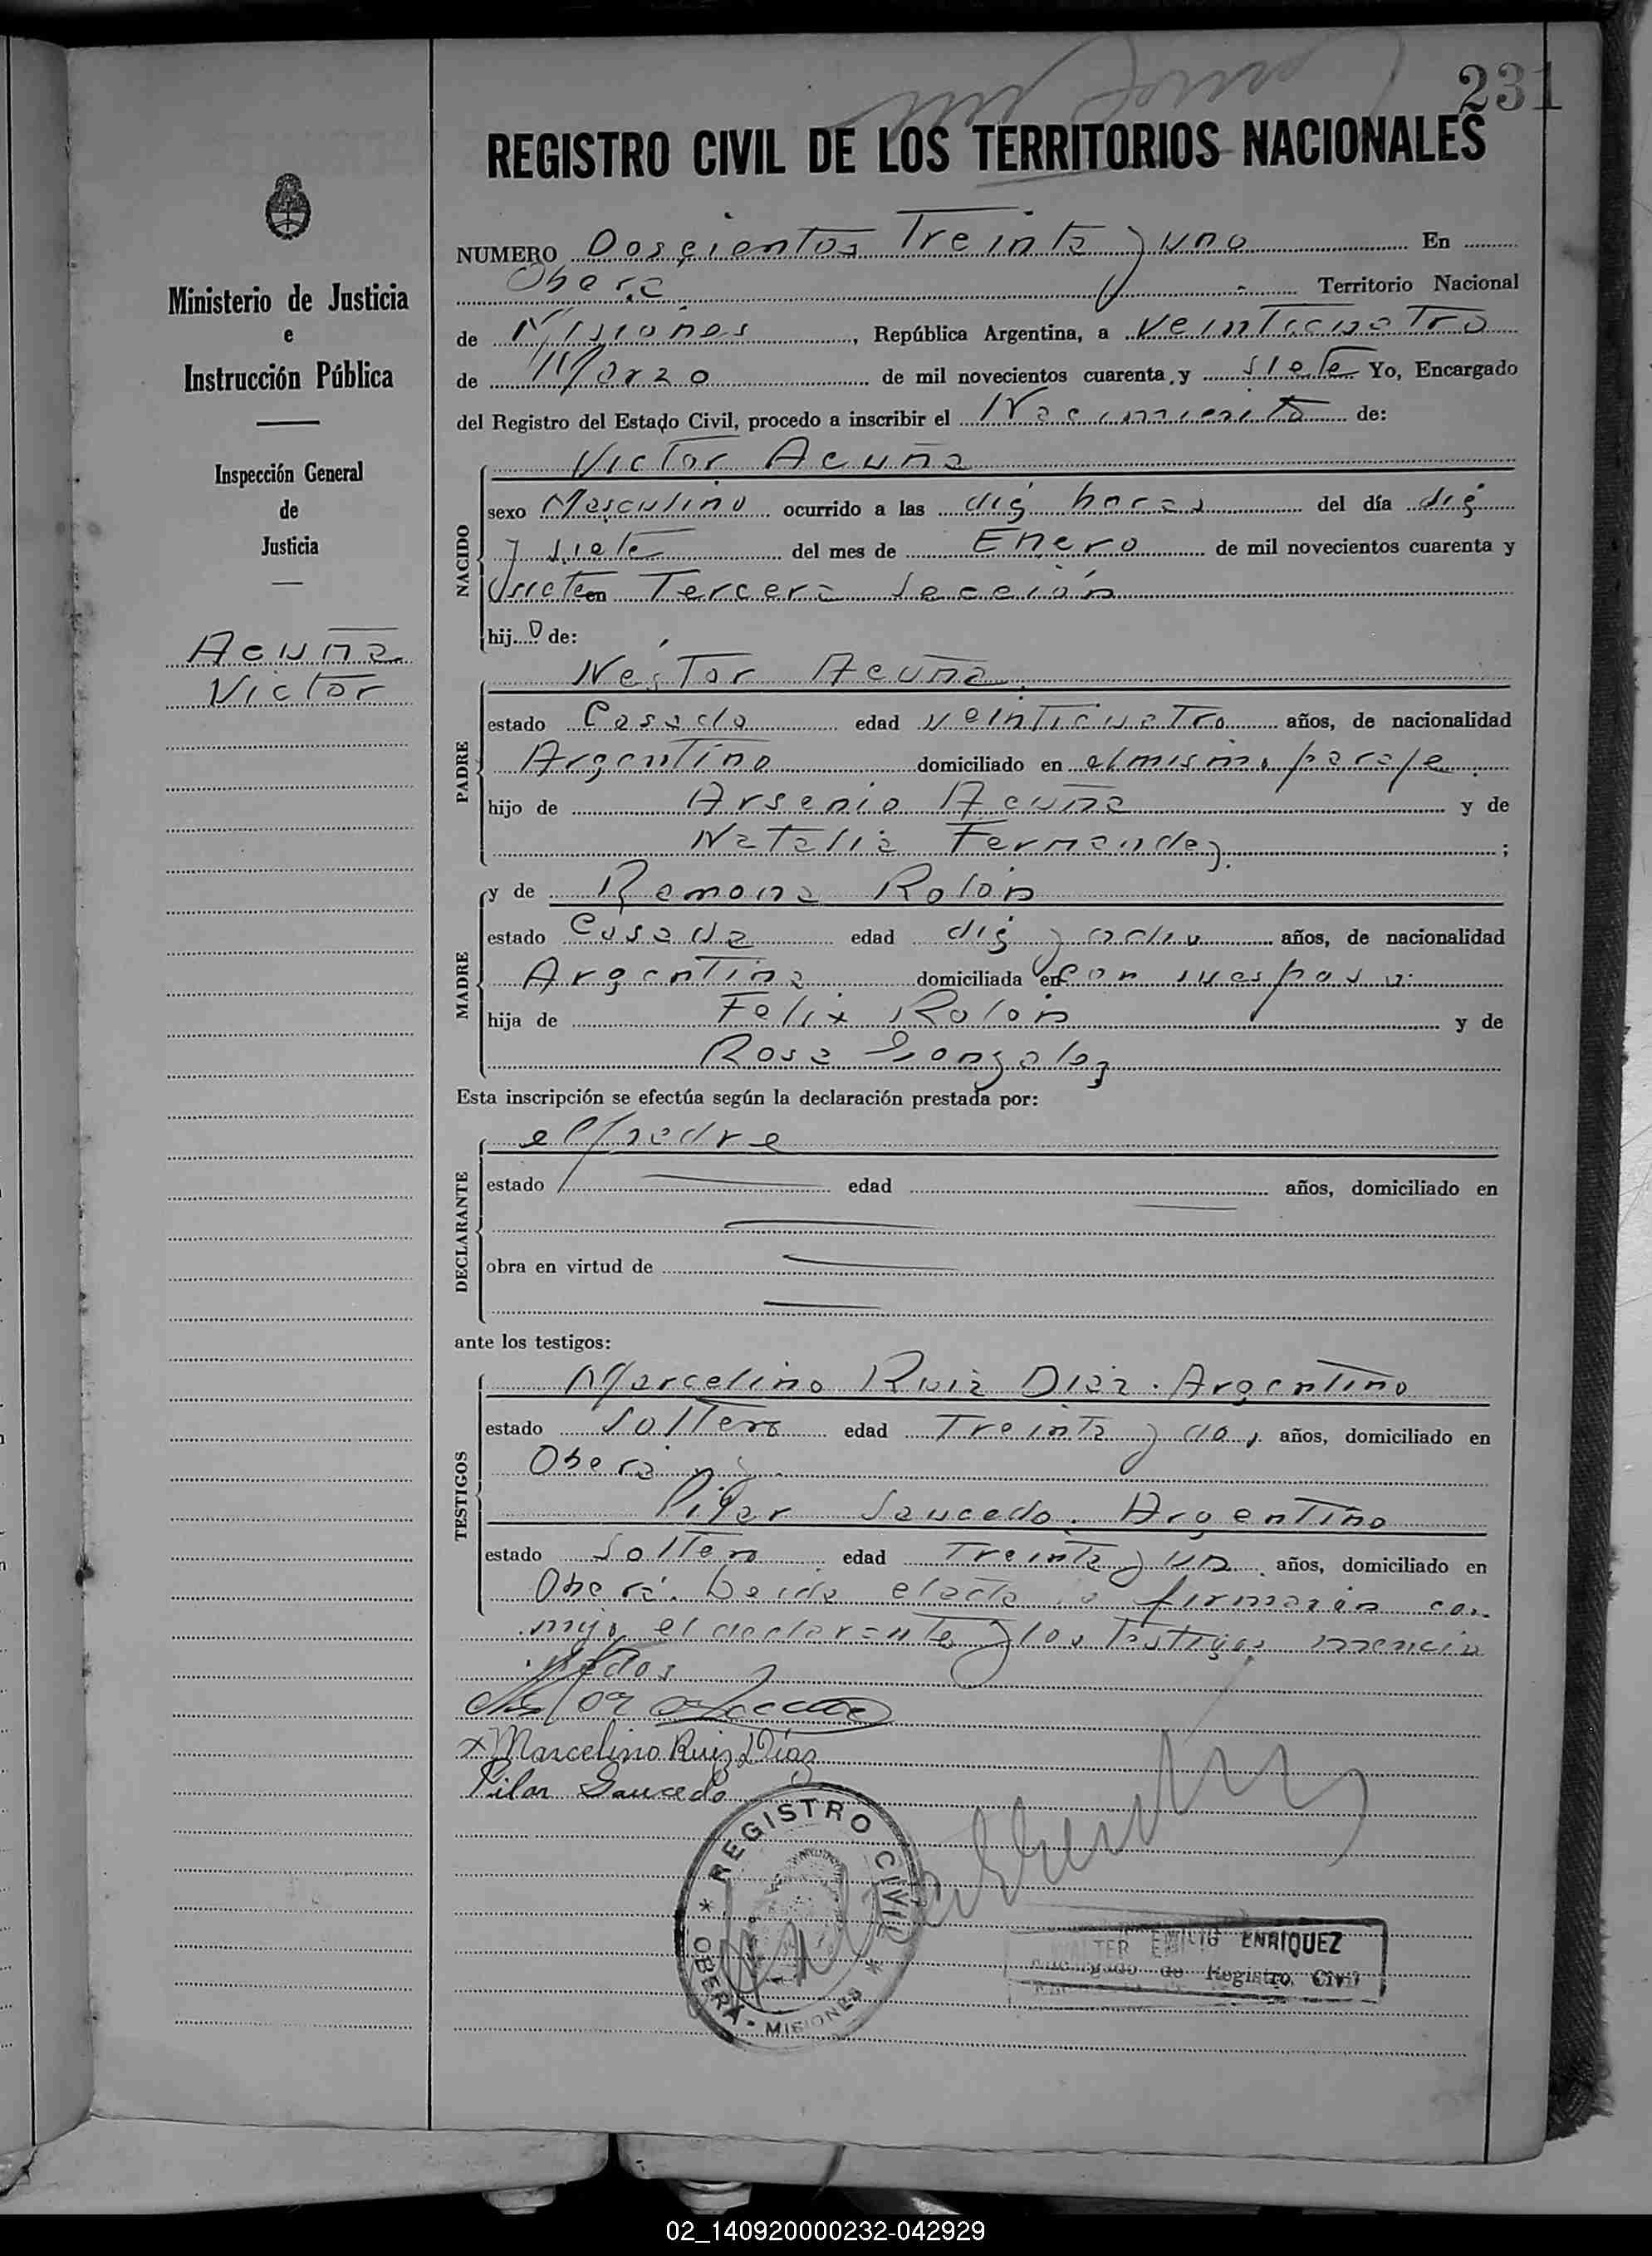 231
REGISTRO CIVIL DE LOS TERRITORIOS NACIONALES
Ministerio de Justicia
e
Instrucción Pública
Inspección General
de
Justicia
Acuña
Victor
NUMERO Doscientos Treinta y uno En
Oberá Territorio Nacional
de Misiones, República Argentina, a Veinticuatro
de Marzo de mil novecientos cuarenta y siete Yo, Encargado
del Registro del Estado Civil, procedo a inscribir el Nacimiento de:
NACIDO
Victor Acuña
sexo Masculino ocurrido a las diez horas del día diez
y siete del mes de Enero de mil novecientos cuarenta y
siete en Tercera Sección
hijo de:
PADRE
Néstor Acuña
estado Casado edad veinticuatro años, de nacionalidad
Argentino domiciliado en el mismo paraje
hijo de Arsenio Acuña y de
Natalia Fernandez;
MADRE
y de Ramona Rolón
estado Casada edad diez y ocho años, de nacionalidad
Argentina domiciliada en con su esposo
hija de Felix Rolón y de
Rosa Gonzalez
Esta inscripción se efectúa según la declaración prestada por:
DECLARANTE
el padre
estado edad años, domiciliado en
obra en virtud de
ante los testigos:
TESTIGOS
Marcelino Ruiz Diaz. Argentino
estado Soltero edad Treinta y dos años, domiciliado en
Oberá
Pilar Saucedo. Argentino
estado Soltero edad Treinta y un años, domiciliado en
Oberá. Leida el acta la firmarán con
migo el declarante y los Testigos mencio
nados
Marcelino Ruiz Díaz
Pilar Saucedo
REGISTRO CIVIL
OBERA - MISIONES
WALTER EMILIO ENRIQUEZ
Encargado de Registro Civil
02_140920000232-042929